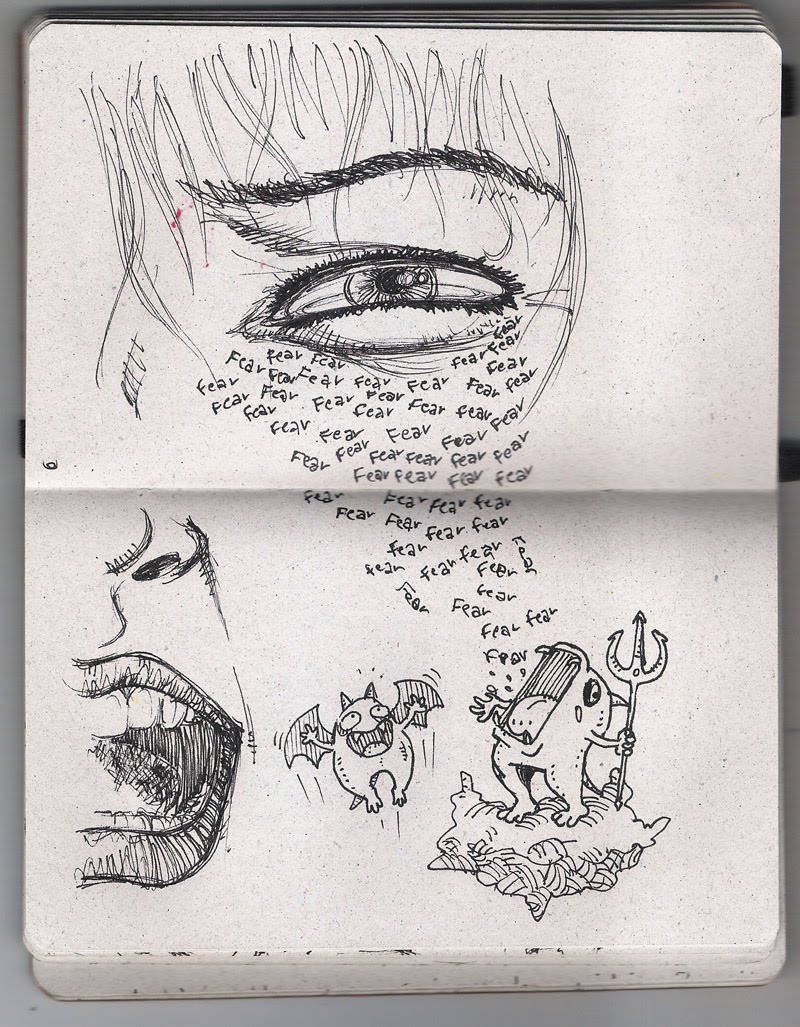 fear
fear
Fear fear fear fear fear
fear fear Fear fear fear fear fear
Fear Fear fear Fear
fear fear Fear fear fear
fear Fear Fear fear
Fear fear Fear fear fear fear
Fear fear fear fear
fear Fear Fear fear
Fear Fear fear fear
fear fear fear
fear fear Fear
fear fear
Fear
Fear fear
Fear